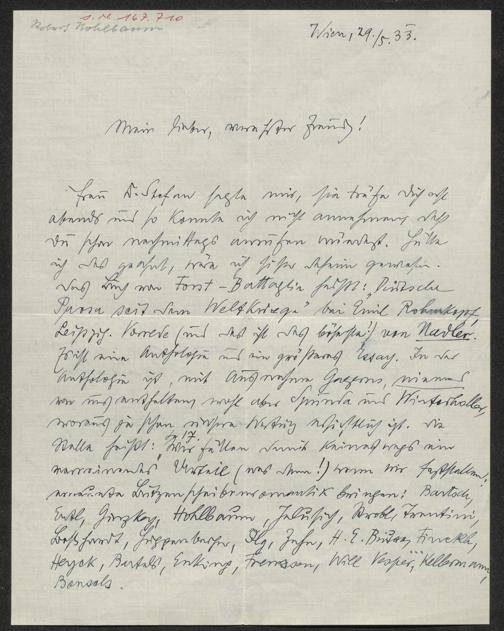 Robert Hohlbaum
Wien, 29./5. 33.
Mein lieber, verehrter Freund!
Frau D. Stefan sagte mir, sie träfe Dich erst
abends und so konnte ich nicht annehmen daß
Du schon nachmittags anrufen würdest. Hätte
ich das geahnt, wäre ich sicher daheim gewesen.
Das Buch von Forst-Battaglia heißt: "Deutsche
Prosa seit dem Weltkriege" bei Emil Rohmkopf,
Leipzig. Vorrede (und das ist das böseste!) von Nadler.
Es ist eine Anthologie und ein größeres Essay. In der
Anthologie ist, mit Ausnahme Ginzkeys, niemand
von uns enthalten, wohl aber Spunda und Winterholler,
woraus ja schon wessen ersichtlich ist. Die
Stelle heißt: "Wir fällen damit keineswegs ein
verneinendes Urteil (was denn!) wenn wir feststellen:
Butzenscheibenromantik bringen: Bartsch,
Ertl, Ginzkey, Hohlbaum, Jelusich, Strobl, Trentini,
Greinz, H. E. Busse, Finckh,
Heyck, Bartels, Enking, Frenssen, Will Vesper, Kellermann,
Bonsels.